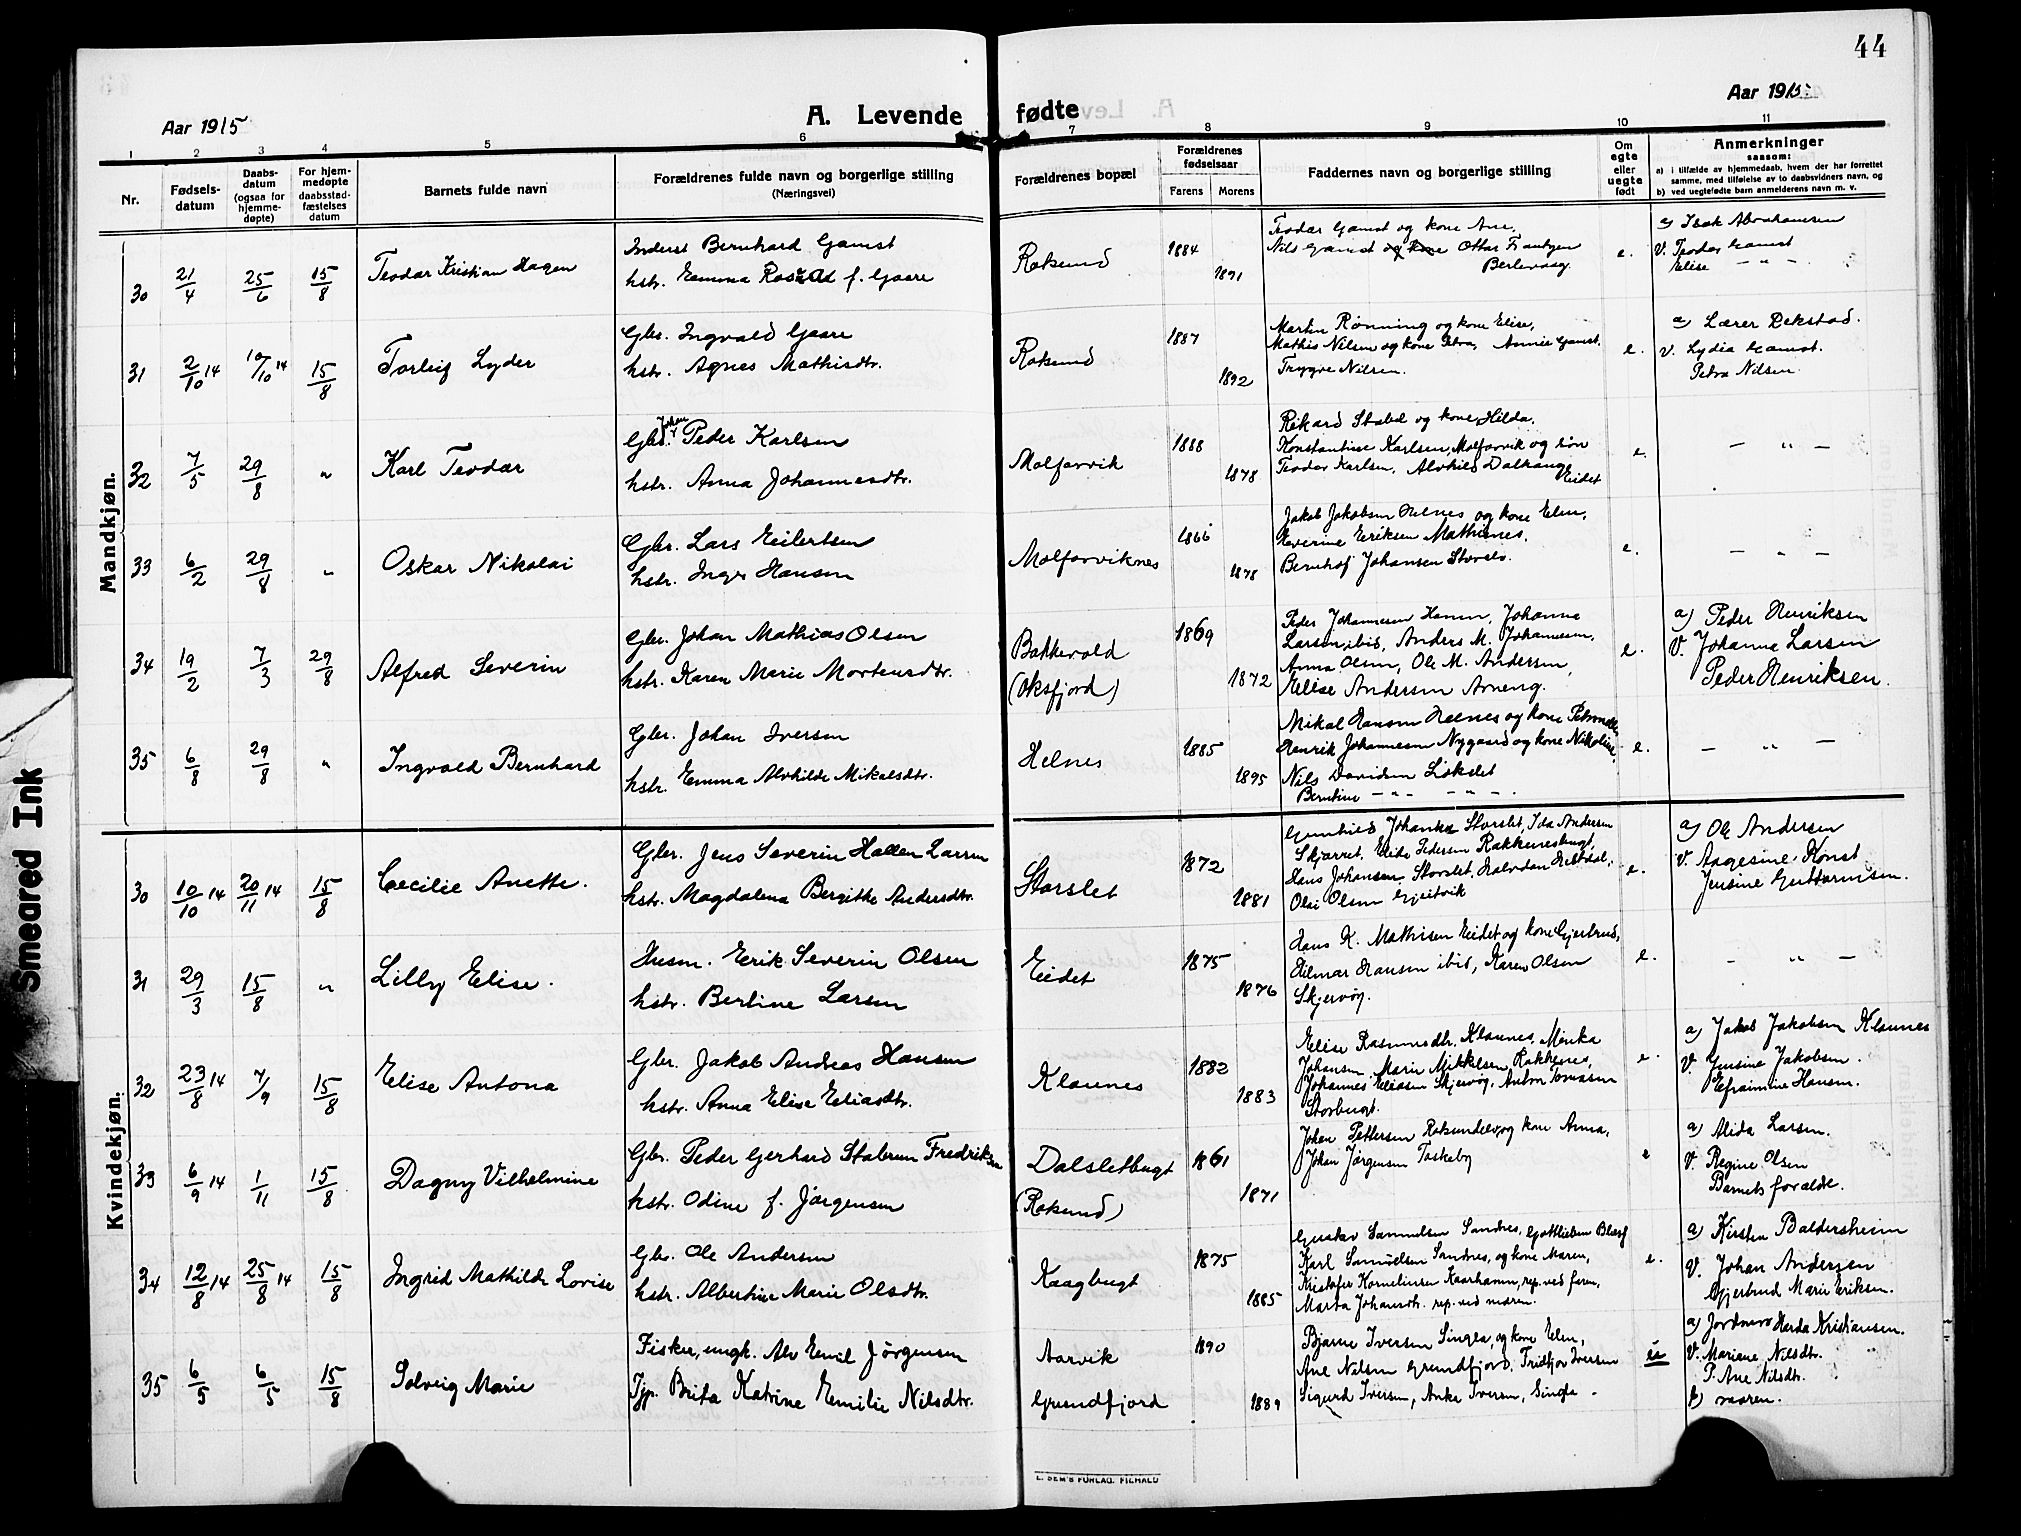 44
Aar 1915
A. Levende fødte
Aar 1915
1 2 3 4 5 6 7 8 9 10 11
Nr.
Fødsels-
datum
Daabs-
datum
(ogsaa for
hjemme-
døpte)
For hjem-
medøpte
daabsstad-
fæstelses
datum
Barnets fulde navn
Forældrenes fulde navn og borgerlige stilling
(Næringsvei)
Forældrenes bopæl
Forældrenes
fødselsaar
Farens Morens
Faddernes navn og borgerlige stilling
Om
egte
eller
uegte
født
Anmerkninger
saasom:
a) i tilfælde av hjemmedaab, hvem der har forrettet
samme, med tilføielse av to daabsvidners navn, og
b) ved uegtefødte barn anmelderens navn m. v.
Mandkjøn.
30 21/4 25/6 15/8 Teodar Kristian Hagen
Inderst Bernhard Gamst
hstr. Emma Rosead f. Gaare
Roksund 1884 1891
Teodar Gamst og kone Ane,
Nils Gamst og kone Ottar
Berlevaag.
e.
a) Isak Abrahamsen
V. Teodar Gamst
Elise — " —
31 2/10 14 10/10 14 15/8 Torleif Lyder
Gbr. Ingvald Gaare
hstr. Agnes Mathisdtr.
Roksund 1887 1892
Martin Rønning og kone Elise,
Mathis Nilsen og kone Petra, Annie Gamst.
Trygve Nilsen.
e.
a) Lærer Dekstad.
V. Lydia Gamst.
Petra Nilsen.
32 7/5 29/8 " Karl Teodar
Gbr. Johan Peder Karlsen
hstr. Anna Johannesdtr.
Molforvik 1888 1878
Rikard Stabel og kone Hilda.
Konstantine Karlsen, Molforvik og søn
Teodor Karlsen, Alvhild Dalhaug
Eidet
e.
— " —
33 6/2 29/8 " Oskar Nikolai
Gbr. Lars Eilertsen
hstr. Inger Hansen
Molforviknes 1866 1878
Jakob Jakobsen Helnes og kone Elen,
Severine Eriksen Mathisnes.
Bernhof Johansen Storslt.
e.
— " —
34 19/2 7/3 29/8 Alfred Severin
Gbr. Johan Mathias Olsen
hstr. Karen Marie Mortensdtr.
Bakkevold
(Oksfjord)
1869 1872
Peder Johannesen Hamn, Johanna
Larsen, ibid, Anders M. Johannesen,
Anna Olsen, Ole M. Andersen,
Elise Andersen Arneng.
e.
a) Peder Henriksen
V. Johanna Larsen
Peder Henriksen.
35 6/8 29/8 " Ingvald Bernhard
Gbr. Johan Iversen
hstr. Emma Alvhilde Mikalsdtr.
Helnes 1885 1895
Mikal Hansen Helnes og kone Petronelle
Henrik Johannesen Nygaard og kone Nikoline,
Nils Davidsen Løkslet
Berntine — " — — " —.
e.
— " —
Kvindekjøn.
30 10/10 14 20/11 14 15/8 Cecilie Anette.
Gbr. Jens Severin Hallen Larsen
hstr. Magdalena Bergitte Andersdtr.
Storslet 1872 1881
Gunhild Johanka Storslet, Ida Andersen
Skjarret, Elide Pedersen Rakkenesbugt,
Hans Johansen Storslet, Halvdan
Olai Olsen Geitvik
e.
a) Ole Andersen
V. Aagesine Konst
Jensine Guttormsen.
31 29/3 15/8 " Lilly Elise.
Husm. Erik Severin Olsen
hstr. Berline Larsen
Eidet 1875 1876
Hans K. Mathisen Eidet og kone Gjertrud,
Hilmar Hansen ibid, Karen Olsen
Skjervøy.
e.
— " —
32 23/8 14 7/9 15/8 Elise Antona
Gbr. Jakob Andreas Hansen
hstr. Anna Elise Eliasdtr.
Klaunes 1882 1883
Elise Rasmusdtr. Klaunes, Monika
Johansen, Marie Mikkelsen, Rakkenes,
Johannes Eliasen Skjervøy, Anton Tomasen
Storbugt.
e.
a) Jakob Jakobsen Klaunes
V. Jensine Jakobsen.
Efraimine Hansen.
33 6/9 14 1/11 15/8 Dagny Vilhelmine
Gbr. Peder Gerhard Stabrun Fredriksen
hstr. Odine f. Jørgensen
Dalsletbugt
(Roksund)
1861 1871
Johan Pettersen Roksundelv og kone Anna,
Johan Jørgensen Taskeby
e
a) Alida Larsen.
V. Regine Olsen
Barnets forældre.
34 12/8 14 25/8 14 15/8 Ingrid Mathilde Lovise
Gbr. Ole Andersen
hstr. Albertine Marie Olsdtr.
Kaagbugt 1875 1885
Gustav Samuelsen Sandnes, Gottlieben
Karl Samuelsen Sandnes, og kone Maren,
Kristofer Kornelinsen Kaarhamn, rep. ved faren,
Marta Johansdtr. rep. ved moren.
e.
a) Kirsten Baldersheim
V. Johan Andersen
Gjertrud Marie Eriksen.
35 6/5 6/5 15/8 Solveig Marie
Fisker, ungk. Alv Emil Jørgensen
Tjp. Brita Katrine Emilie Nilsdtr.
Aarvik
Grundfjord
1890 1889
Bjarne Iversen Singla, og kone Elen,
Ane Nilsen Grundfjord, Fridtjov Iversen
Sigurd Iversen, Anke Iversen, Singla -
u
a) Jordmor Harda Kristiansen.
V. Mariane Nilsdtr.
P. Ane Nilsdtr.
b) moren.
E. SEM'S FORLAG, F.HALD
Smeared Ink